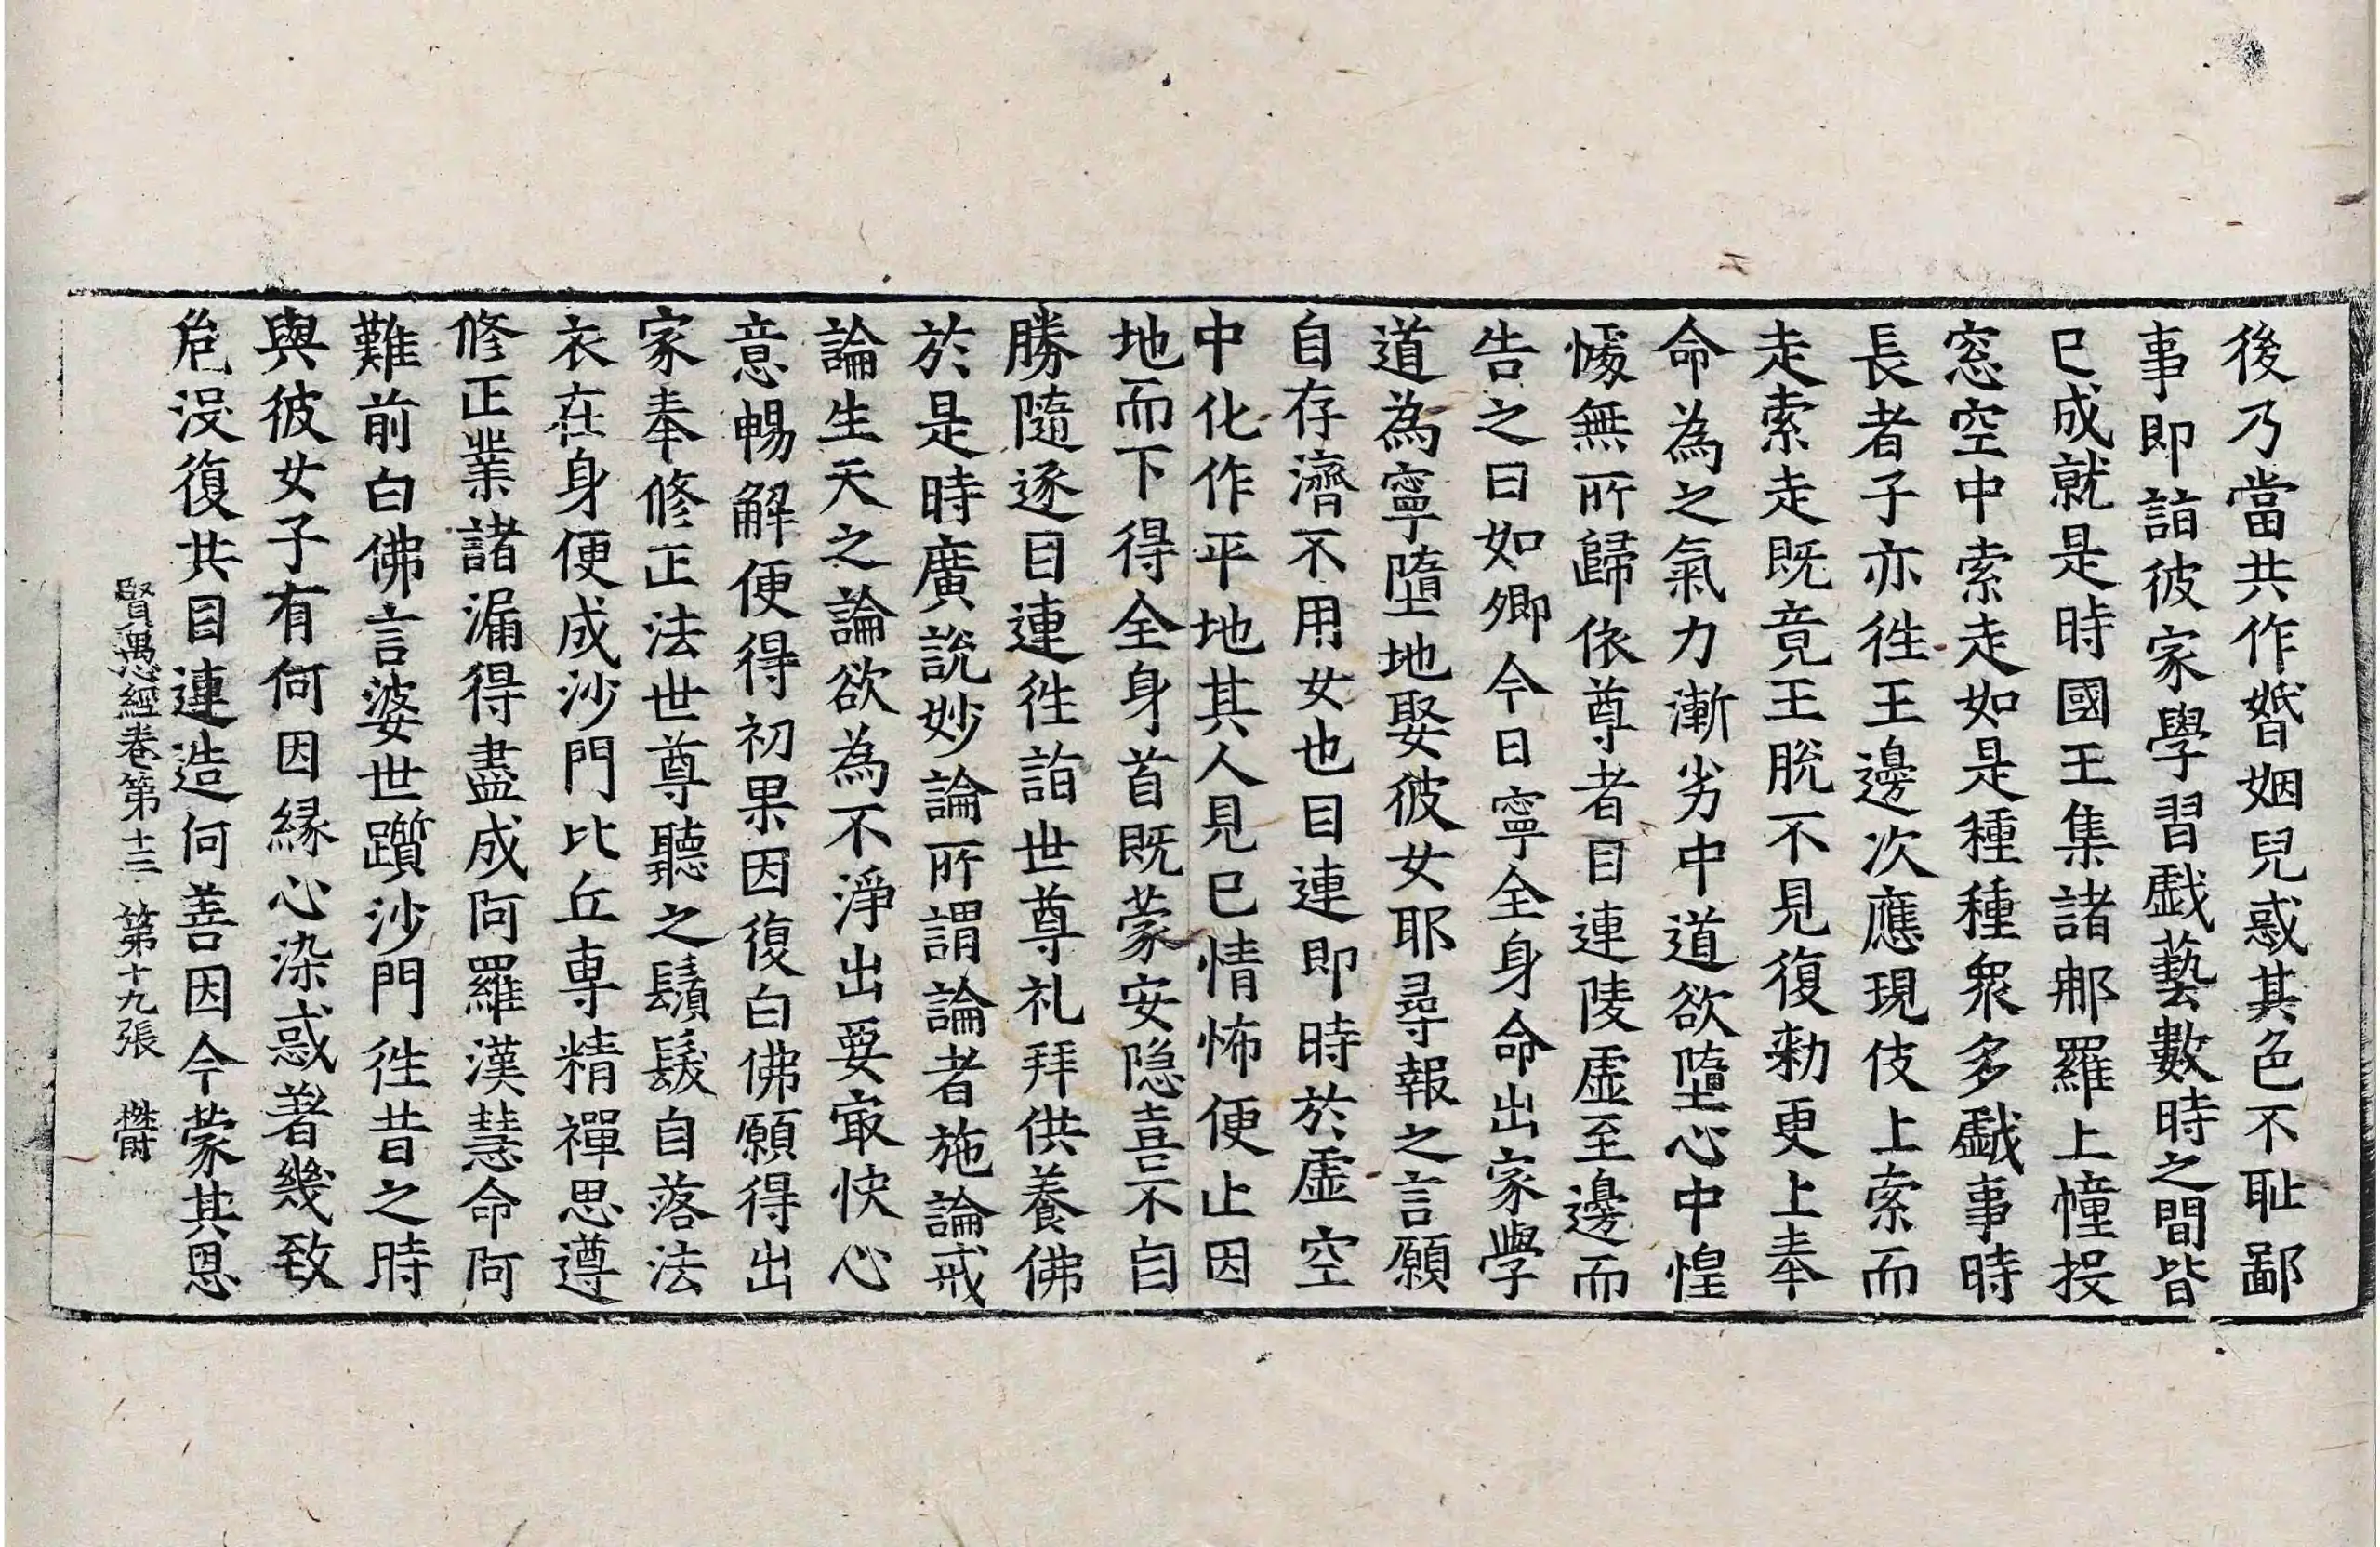 後乃當共作婚姻兒惑其色不耻鄙
事即詣彼家學習戱藝數時之間皆
已成就是時國王集諸那羅上幢投
窓空中索走如是種種衆多戱事時
長者子亦徃王邊次應現伎上索而
走索走既竟王脫不見復勑更上奉
命為之氣力漸劣中道欲墮心中惶
懅無所歸依尊者目連陵虛至邊而
告之曰如卿今日寧全身命出家學
道為寧墮地娶彼女耶尋報之言願
自存濟不用女也目連即時於虛空
中化作平地其人見已情怖便止因
地而下得全身首既蒙安隐喜不自
勝隨逐目連徃詣世尊礼拜供養佛
於是時廣說妙論所謂論者施論戒
論生天之論欲為不淨出要㝡快心
意暢解便得初果因復白佛願得出
家奉修正法世尊聽之鬚髮自落法
衣在身便成沙門比丘専精禪思遵
修正業諸漏得盡成阿羅漢慧命阿
難前白佛言婆世躓沙門徃昔之時
與彼女子有何因緣心染惑著幾致
危没復共目連造何善因今蒙其恩
賢愚經卷第十三 第十九張 欝